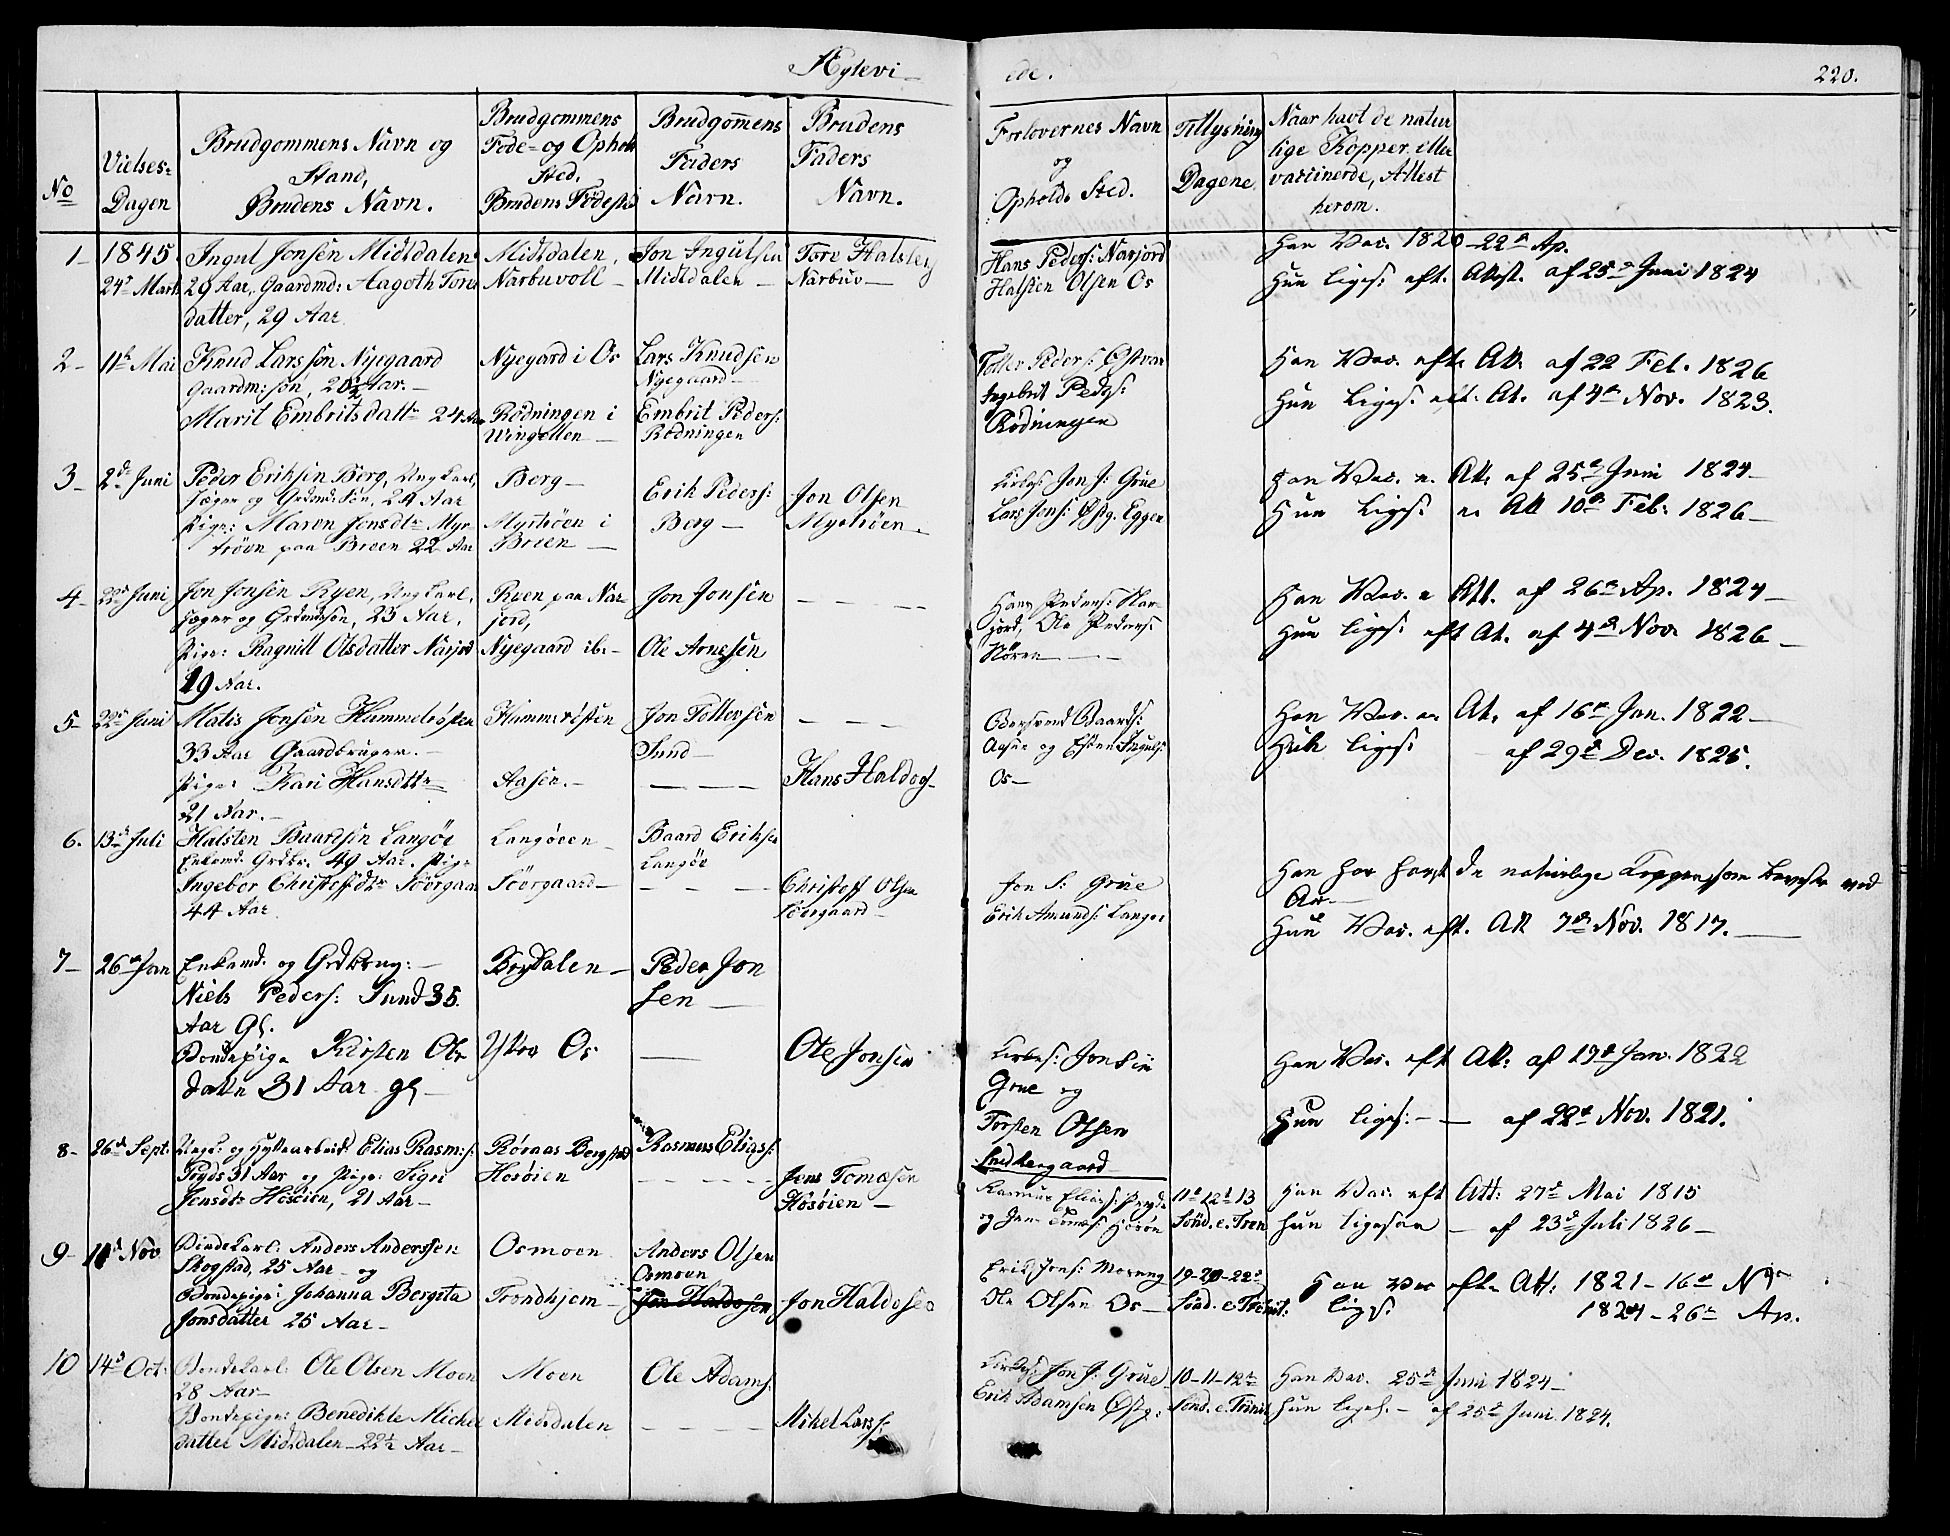 Ægtevi-
ede.
220.
No
Vielses-
Dagen
Brudgommens Navn og
Stand,
Brudens Navn.
Brudgommens
Føde- og Opholds
Sted.
Brudens Fødested
Brudgom̅ens
Faders
Navn.
Brudens
Faders
Navn.
Forlovernes Navn
og
Opholds Sted.
Tillysning
Dagene.
Naar havt de natur
lige Kopper eller
vaccinerde, Attest
herom.
1-
1845.
24de Marts
Ingul Jonsen Midtdalen
29 Aar, Gaardmd: Aagoth Tores
datter, 29 Aar.
Midtdalen,
Narbuvoll -
Jon Ingulsen
Midtdalen -
Tore Halsteg
Narbuv -
Hans Peders: Narjord
Halsten Olsen Os
Han Vac. 1820 - 22de Ap.
Hun ligs: eft. Attest. af 25de Juni 1824
2-
11te Mai
Knud Larssen Nyegaard
Gaardm: søn, 20½ Aar. -
Marit Embritsdattr 24 Aar
Nyegard i Os
Rødningen i
Wingelen -
Lars Knudsen
Nyegaard -
Embrit Peders:
Rødningen
Toller Peders: Østvan
Ingebrit Peders:
Rødningen
Han Vac. eft. Att. af 22 Feb. 1826
Hun ligs. eft. At. af 4de Nov. 1823.
3-
2den Juni
Peder Eriksen Berg, Ungkarl,
Jæger og Grdmd: søn, 24 Aar
Pige: Maren Jonsdtr Myr
trøen paa Breen 22 Aar
Berg -
Myrtrøen i
Breen -
Erik Peders:
Berg -
Jon Olsen
Myrtrøen.
Kirkes: Jon J: Grue
Lars Jons: Østg. Eggen
Han Vac. e. Att. af 25de Juni 1824 -
Hun ligs: e. Att 10de Feb. 1826 -
4-
22de Juni
Jon Jonsen Ryen, Ungkarl,
Jæger og Grdmdsøn, 23 Aar,
Pige: Ragnill Olsdatter Narjord
19 Aar.
Ryen paa Nar-
jord,
Nyegaard ib. -
Jon Jonsen
Ole Arnesen
- - -
Hans Peders: Nar-
jord, Ole Peders:
Nøren -
Han Vac. e Att. af 26de Ap. 1824 -
Hun ligs: eft At. af 4de Nov. 1826 -
5-
22de Juni
Matis Jonsen Hummelrøsten
33 Aar Gaardbruger. -
Pige: Kari Hansdttr
21 Aar. -
Hummelrøsten
Aasen. -
Jon Tollevsen
Sund -
- - -
- - -
Hans Haldog
Aasen og Esten Inguls
Os -
Han Vac. e. At. af 16de Jan. 1822 -
Hun ligs: - af 29de Dec. 1825.
6.
13de Juli
Halsten Baardsen Langøe
Enkemd. Grdbr. 49 Aar. Pige
Ingebor Christoffsdtr Søorgaar
44 Aar
Langøeen -
Søorgaard -
Baard Eriksen
Langøe
- - -
Christoff Olsen
Søorgaard -
Jon S: Grue
Erik Amunds: Langøe
Han har havt de naturlige Kopper som bevises ved
Ar -
Hun Vac. eft. Att 7de Nov. 1817. -
7-
26de Jan
Enkemd. og Grdbrug: -
Niels Peders: Sund 35.
Aar Gl.
Bondepige Kirsten Ols
datte 31 Aar gl -
Bogdalen -
Ytre Os
Peder Jon
sen -
-
Ole Jonsen
Kirkes: Jon Sin
Grue og
Torsten Olsen
Sundhergaard
Han Vac. eft Att: af 19de Jan. 1822
Hun ligs: - - af 22de Nov. 1821.
8-
26de Sept:
Ungk: og Hyttearbeid: Elias Rasm:s:
Pryds 31 Aar og Pige: Signe
Jensdtr Hosøien, 21 Aar -
Røraas Bergstad
Hosøien
Rasmus Elias:
- - - -
Jens Tomæsen
Hosøien -
Rasmus Elias: Pryds
og Jens Tomæs: Hosøien
11te 12te 13
Sønd. e. Tren
Han Vac. eft Att: 27de Mai 1815
Hun ligesaa - af 23de Juli 1826 -
9-
11te Nov
Bondekarl: Anders Anderssen
Skogstad, 25 Aar - og
Bondepige: Johanna Bergita
Jonsdatter 25 Aar -
Osmoen
Trondhjem -
Anders Olsen
Osmoen
Jon Haldosen
Jon Haldosen
Erik Jons: Moseng
Ole Olsen Os -
19-20-22de
Sønd. e. Trinit:
Han Vac eft. Att: 1821 - 16de Nov
ligs: 1824 - 26de Ap.
10
14de Oct:
Bondekarl: Ole Olsen Moen
28 Aar -
Bondepige: Benedikte Michel
datter Midtdalen - 22½ Aar -
Moen
Midtdalen
Ole Adams:
- - - -
Mikel Larss:
Kirkes: Jon J: Grue
Erik Adamsen Østg:
10-11-12te
Sønd. e. Trinit
Han Vac. 25de Juni 1824 -
Hun liges. - af 25de Juni 1824.